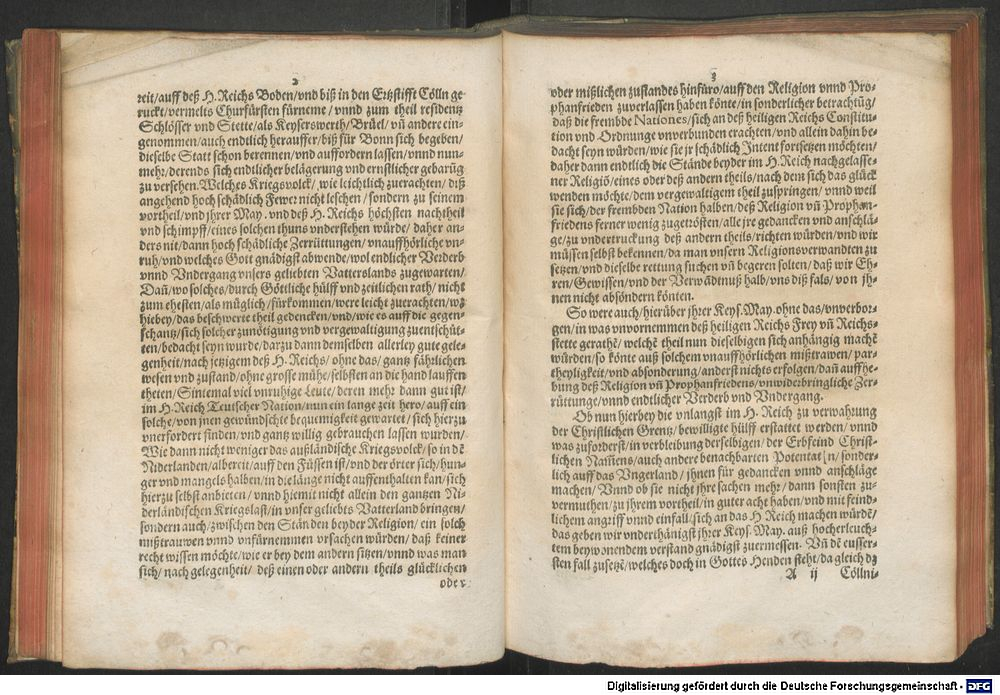 2
reit/auff deß H. Reichs Boden/vnd biß in den Ertzstifft Cölln ge-
ruckt/vermelts Churfürsten fürneme/vnnd zum theil residentz
Schlösser vnd Stette/als Keyserswerth/Brüel/vñ andere ein-
genommen/auch endtlich herauffer/biß für Bonn sich begeben/
dieselbe Statt schon berennen/vnd auffordern lassen/vnnd nun-
mehr/derends sich endtlicher belägerung vnd ernstlicher gebarūg
zu versehen. Welches Kriegsvolck/wie leichtlich zuerachten/diß
angehend hoch schädlich Fewer nicht leschen/sondern zu seinem
vortheil/vnd jhrer May. vnd deß H. Reichs höchsten nachtheil
vnd schimpff/eines solchen thuns vnderstehen würde/daher an-
ders nit/dann hoch schädliche Zerrüttungen/vnauffhörliche vn-
ruh/vnd welches Gott gnädigst abwende/wol endlicher Verderb
vnnd Vndergang vnsers geliebten Vatterslands zugewarten/
Dañ/wo solches/durch Göttliche hülff vnd zeitlichen rath/nicht
zum ehesten/als müglich/fürkommen/were leicht zuerachten/wz
hiebey/das beschwerte theil gedencken/vnd/wie es auff die gegen-
schantz/sich solcher zunötigung vnd vergewaltigung zuentschüt-
ten/bedacht seyn wurde/darzu dann demselben allerley gute gele-
genheit/nach jetzigem deß H. Reichs/ohne das/gantz fährlichen
wesen vnd zustand/ohne grosse mühe/selbsten an die hand lauffen
theten/Sintemal viel vnruhige Leute/deren mehr dann gut ist/
im H. Reich Teutscher Nation/nun ein lange zeit hero/auff ein
solche/von jnen gewündschte bequemigkeit gewartet/sich hierzu
vnerfordert finden/vnd gantz willig gebrauchen lassen wurden/
Wie dann nicht weniger das außländische Kriegsvolck/so in dē
Niderlanden/albereit/auff den Füssen ist/vnd der örter sich/hun-
ger vnd mangels halben/in die länge nicht auffenthalten kan/sich
hierzu selbst anbieten/vnnd hiemit nicht allein den gantzen Ni-
derländischen Kriegslast/in vnser geliebts Vatterland bringen/
sondern auch/zwischen den Ständen beyder Religion/ein solch
mißtrauwen vnnd vnfürnemmen vrsachen würden/daß keiner
recht wissen möchte/wie er bey dem andern sitzen/vnnd was man
sich/nach gelegenheit/deß einen oder andern theils glücklichen
oder
3
oder mißlichen zustandes hinfüro/auff den Religion vnnd Pro-
phanfrieden zuverlassen haben könte/in sonderlicher betrachtūg/
daß die frembde Nationes/sich an deß heiligen Reichs Constitu-
tion vnd Ordnunge vnverbunden erachten/vnd allein dahin be-
dacht seyn würden/wie sie jr schädlich Intent fortsetzen möchten/
daher dann endtlich die Stände beyder im H. Reich nachgelasse-
ner Religiō/eines oder deß andern theils/nach dem sich das glück
wenden möchte/dem vergewaltigem theil zuspringen/vnnd weil
sie sich/der frembden Nation halben/deß Religion vñ Prophan-
friedens ferner wenig zugetrösten/alle jre gedancken vnd anschlä-
ge/zu vndertruckung deß andern theils/richten würden/vnd wir
müssen selbst bekennen/da man vnsern Religionsverwandten zu
setzen/vnd dieselbe rettung suchen vñ begeren solten/daß wir Eh-
ren/Gewissen/vnd der Verwādtnuß halb/vns diß fals/von jh-
nen nicht absöndern könten.
So were auch/hierüber jhrer Keys. May. ohne das/vnverbor-
gen/in was vnvornemmen deß heiligen Reichs Frey vñ Reichs-
stette gerathē/welchē theil nun dieselbigen sich anhängig machē
würden/so könte auß solchem vnauffhörlichen mißtrawen/par-
theyligkeit/vnd absonderung/anderst nichts erfolgen/dañ auffhe-
bung deß Religion vñ Prophanfriedens/vnwiderbringliche Zer-
rüttunge/vnnd endtlicher Verderb vnd Vndergang.
Ob nun hierbey die vnlangst im H. Reich zu verwahrung
der Christlichen Grentz/bewilligte hülff erstattet werden/vnnd
was zuforderst/in verbleibung derselbigen/der Erbfeind Christ-
lichen Nam̃ens/auch andere benachbarten Potentaten/sonder-
lich auff das Vngerland/jhnen für gedancken vnnd anschläge
machen/Vnnd ob sie nicht jhre sachen mehr/dann sonsten zu-
vermuthen/zu jhrem vortheil/in guter acht haben/vnd mit feind-
lichem angriff vnnd einfall/sich an das H Reich machen würdē/
das geben wir vnderthänigst jhrer Keys. May. auß hocherleuch-
tem beywonendem verstand gnädigst zuermessen. Vñ dē eusser-
sten fall zusetzē/welches doch in Gottes Henden steht/da gleich dz
A ij Cöllni-
Digitalisierung gefördert durch die Deutsche Forschungsgemeinschaft - DFG